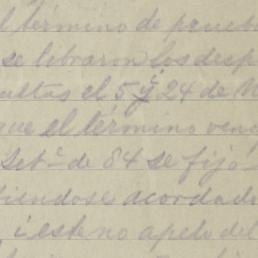 l término de prueb
se libraron los desp
ueltas el 5 y 24 de N
que el término venc
Setᵉ de 84 se fijó
biendose acordado
, i este no apeló del